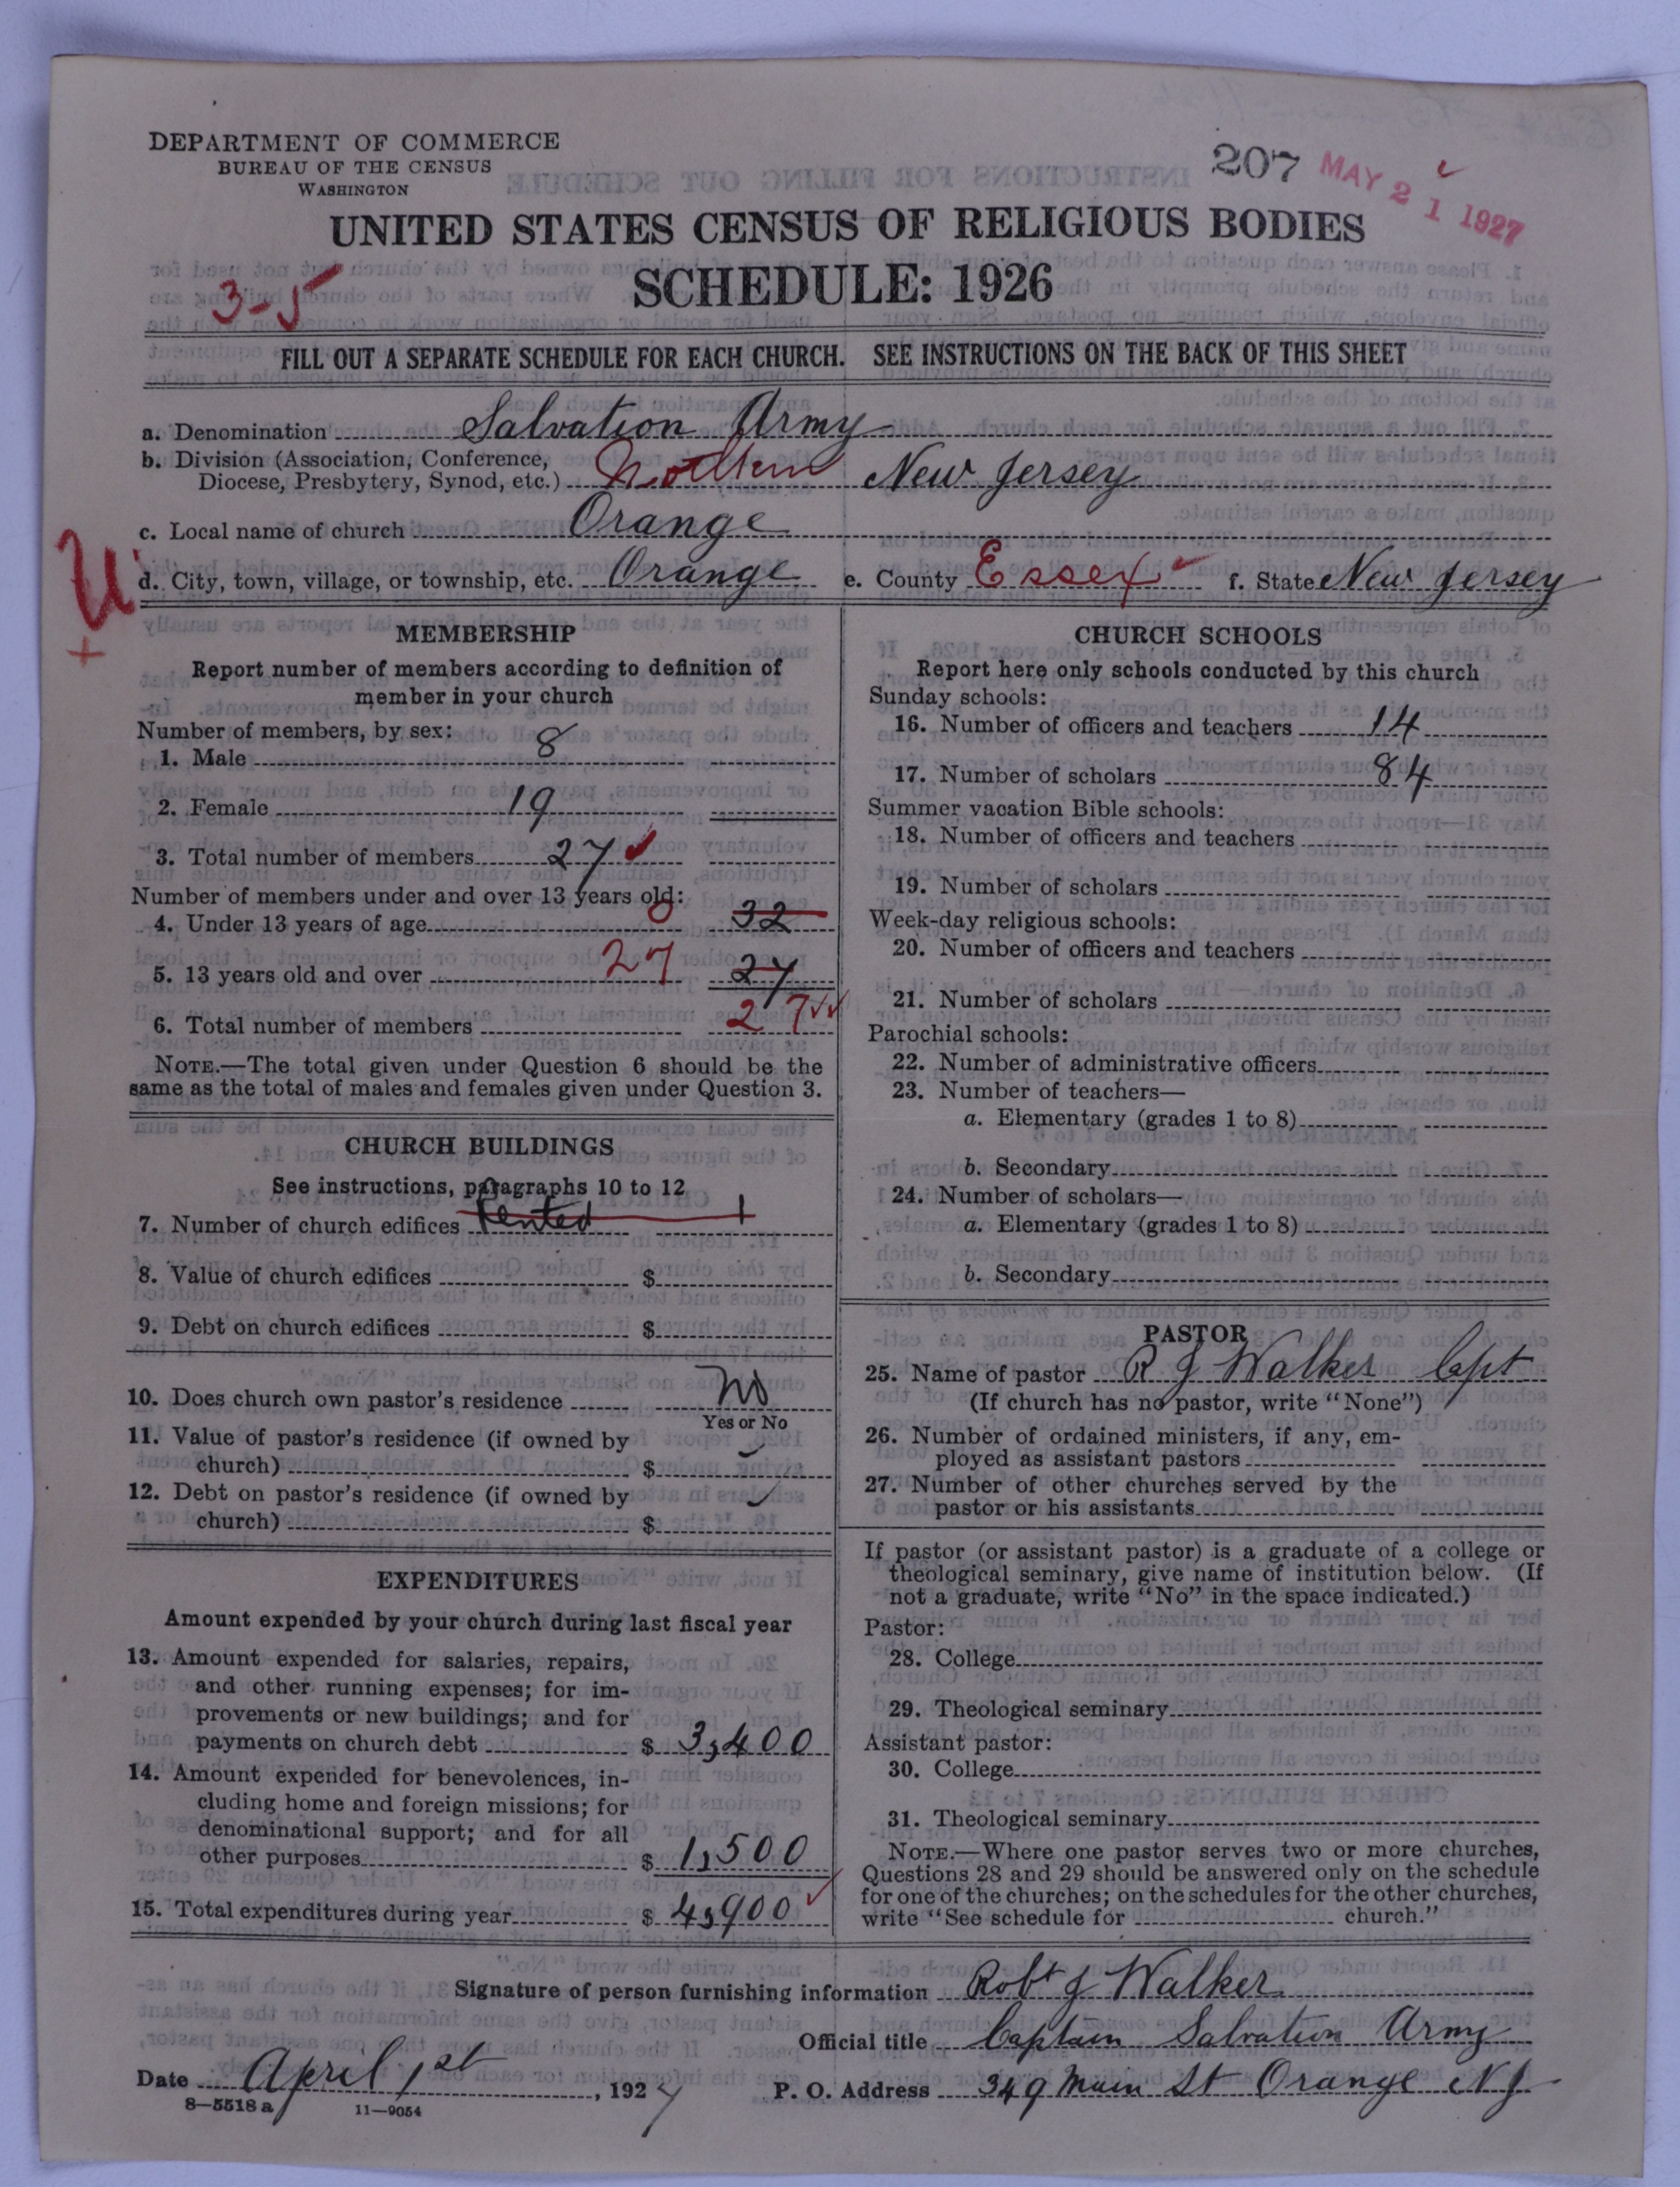 DEPARTMENT OF COMMERCE
BUREAU OF THE CENSUS
WASHINGTON
207 MAY 21 1927
UNITED STATES CENSUS OF RELIGIOUS BODIES
3-5
SCHEDULE: 1926
FILL OUT A SEPARATE SCHEDULE FOR EACH CHURCH. SEE INSTRUCTIONS ON THE BACK OF THIS SHEET
a. Denomination Salvation Army
b. Division (Association, Conference,
Diocese, Presbytery, Synod, etc.) Northern New Jersey
c. Local name of church Orange
U
d. City, town, village, or township, etc. Orange e. County Essex f. State New Jersey
+
MEMBERSHIP
Report number of members according to definition of
member in your church
Number of members, by sex:
1. Male 8
2. Female 19
3. Total number of members 27
Number of members under and over 13 years old:
4. Under 13 years of age 0 32
5. 13 years old and over 27 27
6. Total number of members 27
NOTE.—The total given under Question 6 should be the
same as the total of males and females given under Question 3.
CHURCH BUILDINGS
See instructions, paragraphs 10 to 12
7. Number of church edifices Rented 1
8. Value of church edifices $
9. Debt on church edifices $
10. Does church own pastor's residence No
Yes or No
11. Value of pastor's residence (if owned by
church) $
12. Debt on pastor's residence (if owned by
church) $
EXPENDITURES
Amount expended by your church during last fiscal year
13. Amount expended for salaries, repairs,
and other running expenses; for im-
provements or new buildings; and for
payments on church debt $ 3,400
14. Amount expended for benevolences, in-
cluding home and foreign missions; for
denominational support; and for all
other purposes $ 1,500
15. Total expenditures during year $ 4,900
CHURCH SCHOOLS
Report here only schools conducted by this church
Sunday schools:
16. Number of officers and teachers 14
17. Number of scholars 84
Summer vacation Bible schools:
18. Number of officers and teachers
19. Number of scholars
Week-day religious schools:
20. Number of officers and teachers
21. Number of scholars
Parochial schools:
22. Number of administrative officers
23. Number of teachers—
a. Elementary (grades 1 to 8)
b. Secondary
24. Number of scholars—
a. Elementary (grades 1 to 8)
b. Secondary
PASTOR
25. Name of pastor R J Walker Capt
(If church has no pastor, write "None")
26. Number of ordained ministers, if any, em-
ployed as assistant pastors
27. Number of other churches served by the
pastor or his assistants
If pastor (or assistant pastor) is a graduate of a college or
theological seminary, give name of institution below. (If
not a graduate, write "No" in the space indicated.)
Pastor:
28. College
29. Theological seminary
Assistant pastor:
30. College
31. Theological seminary
NOTE.—Where one pastor serves two or more churches,
Questions 28 and 29 should be answered only on the schedule
for one of the churches; on the schedules for the other churches,
write "See schedule for church."
Signature of person furnishing information Robt J Walker
Official title Captain Salvation Army
Date April 1st, 1927 P. O. Address 349 Main St Orange NJ
8—5518 a 11—9054